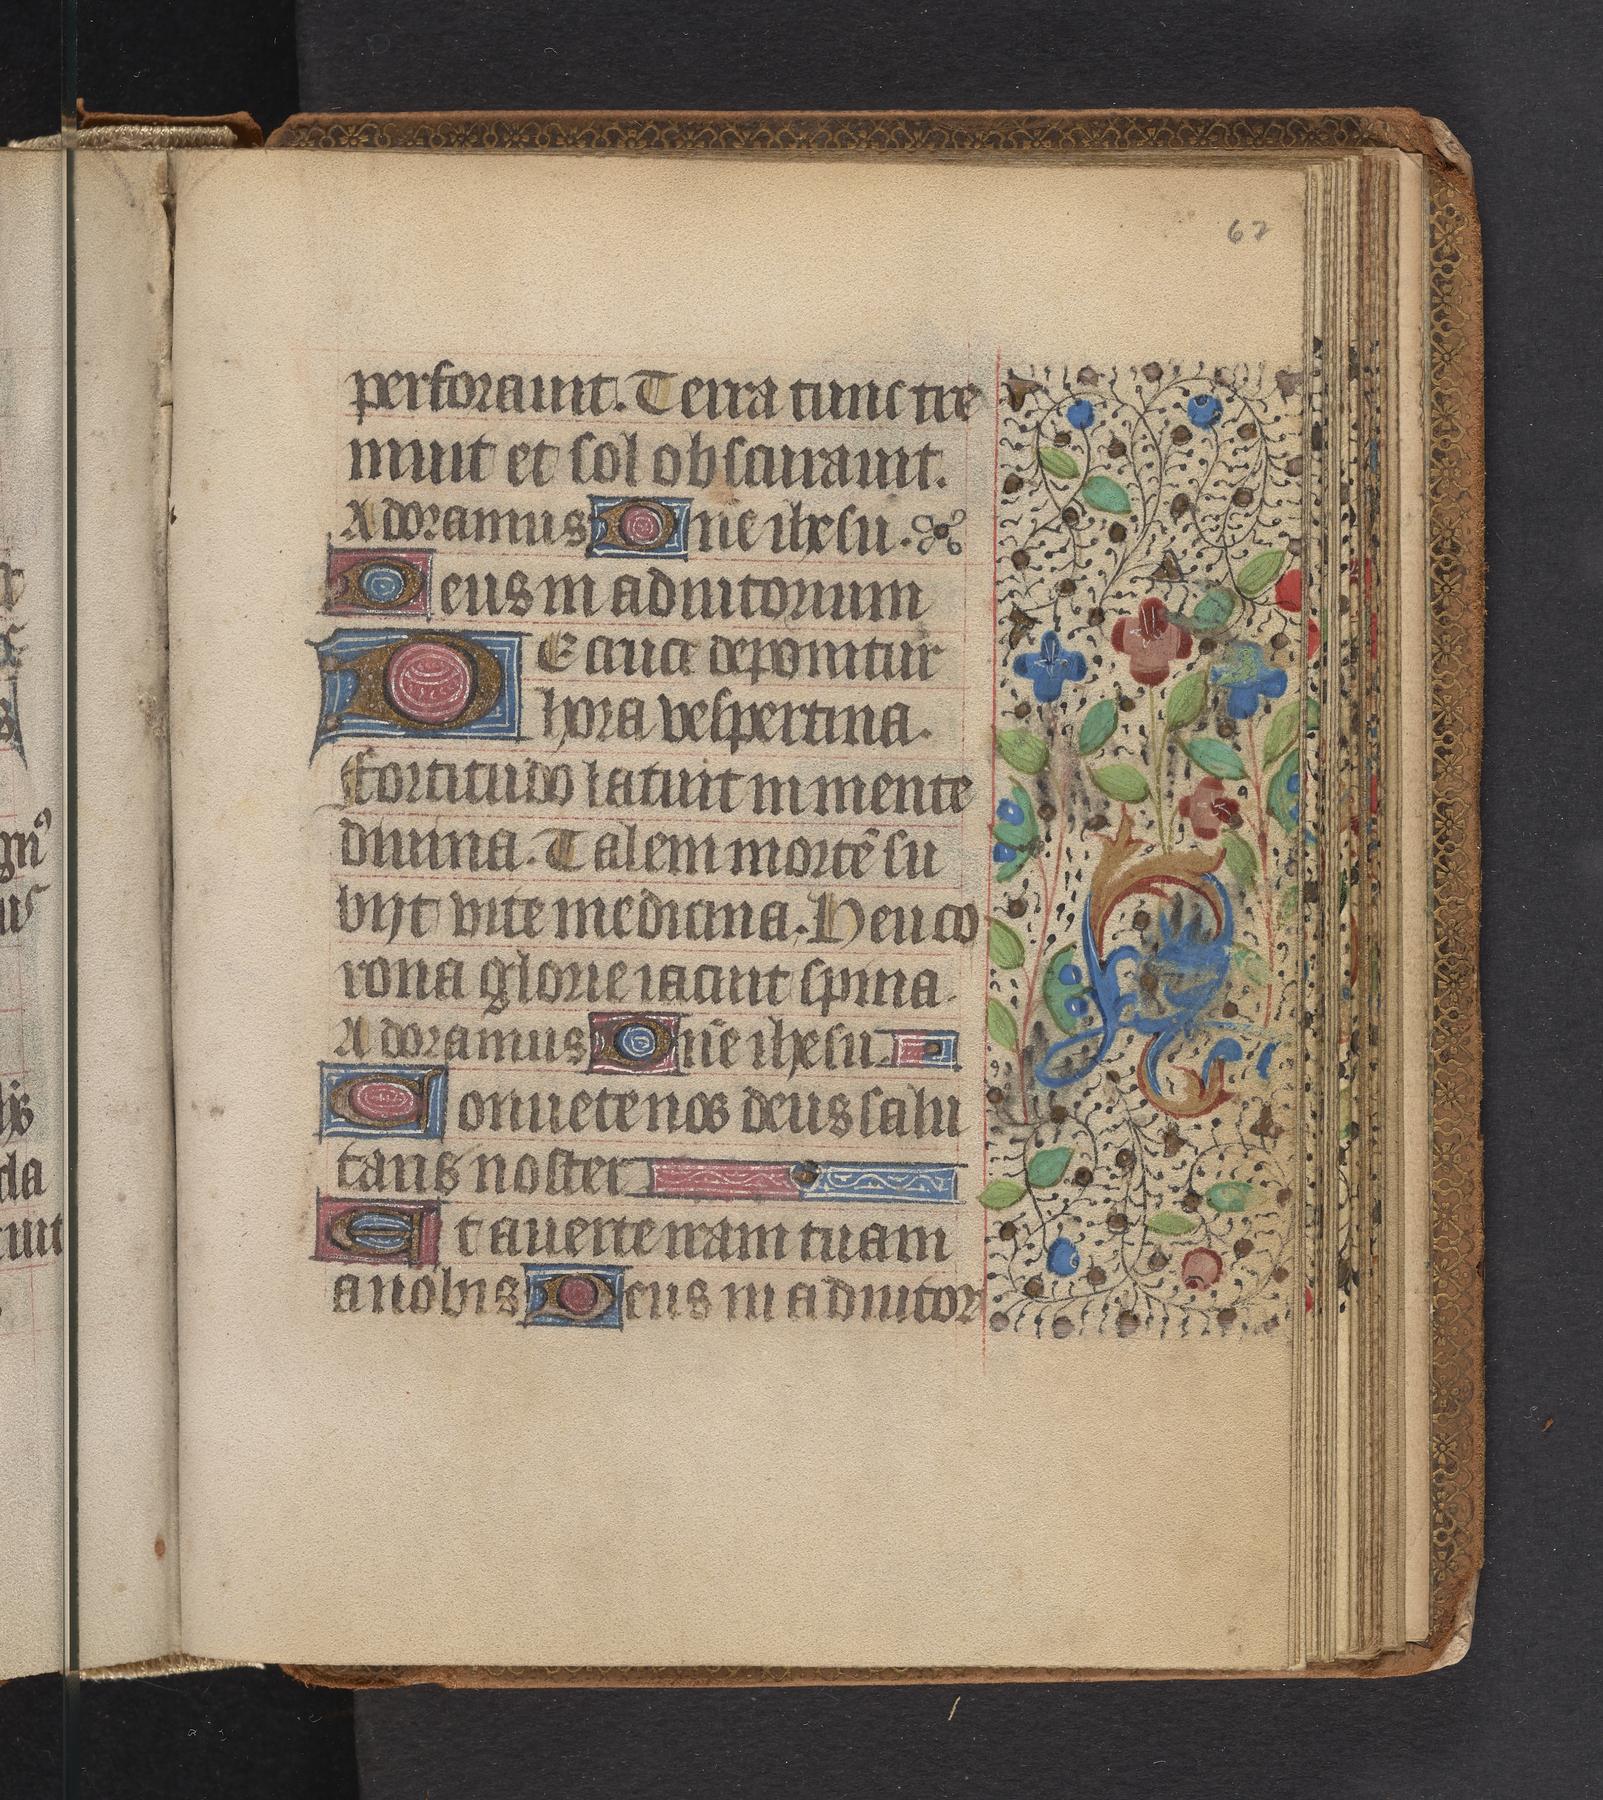 67
perforauit. Terra tunc tre
muit et sol obscurauit.
Adoramus Dn̄e ihesu.
Deus in adiutorium
DE cruce deponitur
hora vespertina.
Fortitudo latuit in mente
diuina. Talem mortē su
bijt vite medicina. Heu co
rona glorie iacuit spina.
Adoramus Dn̄e ihesu.
Conuerte nos deus salu
taris noster
Et auerte iram tuam
a nobis Deus in adiutor